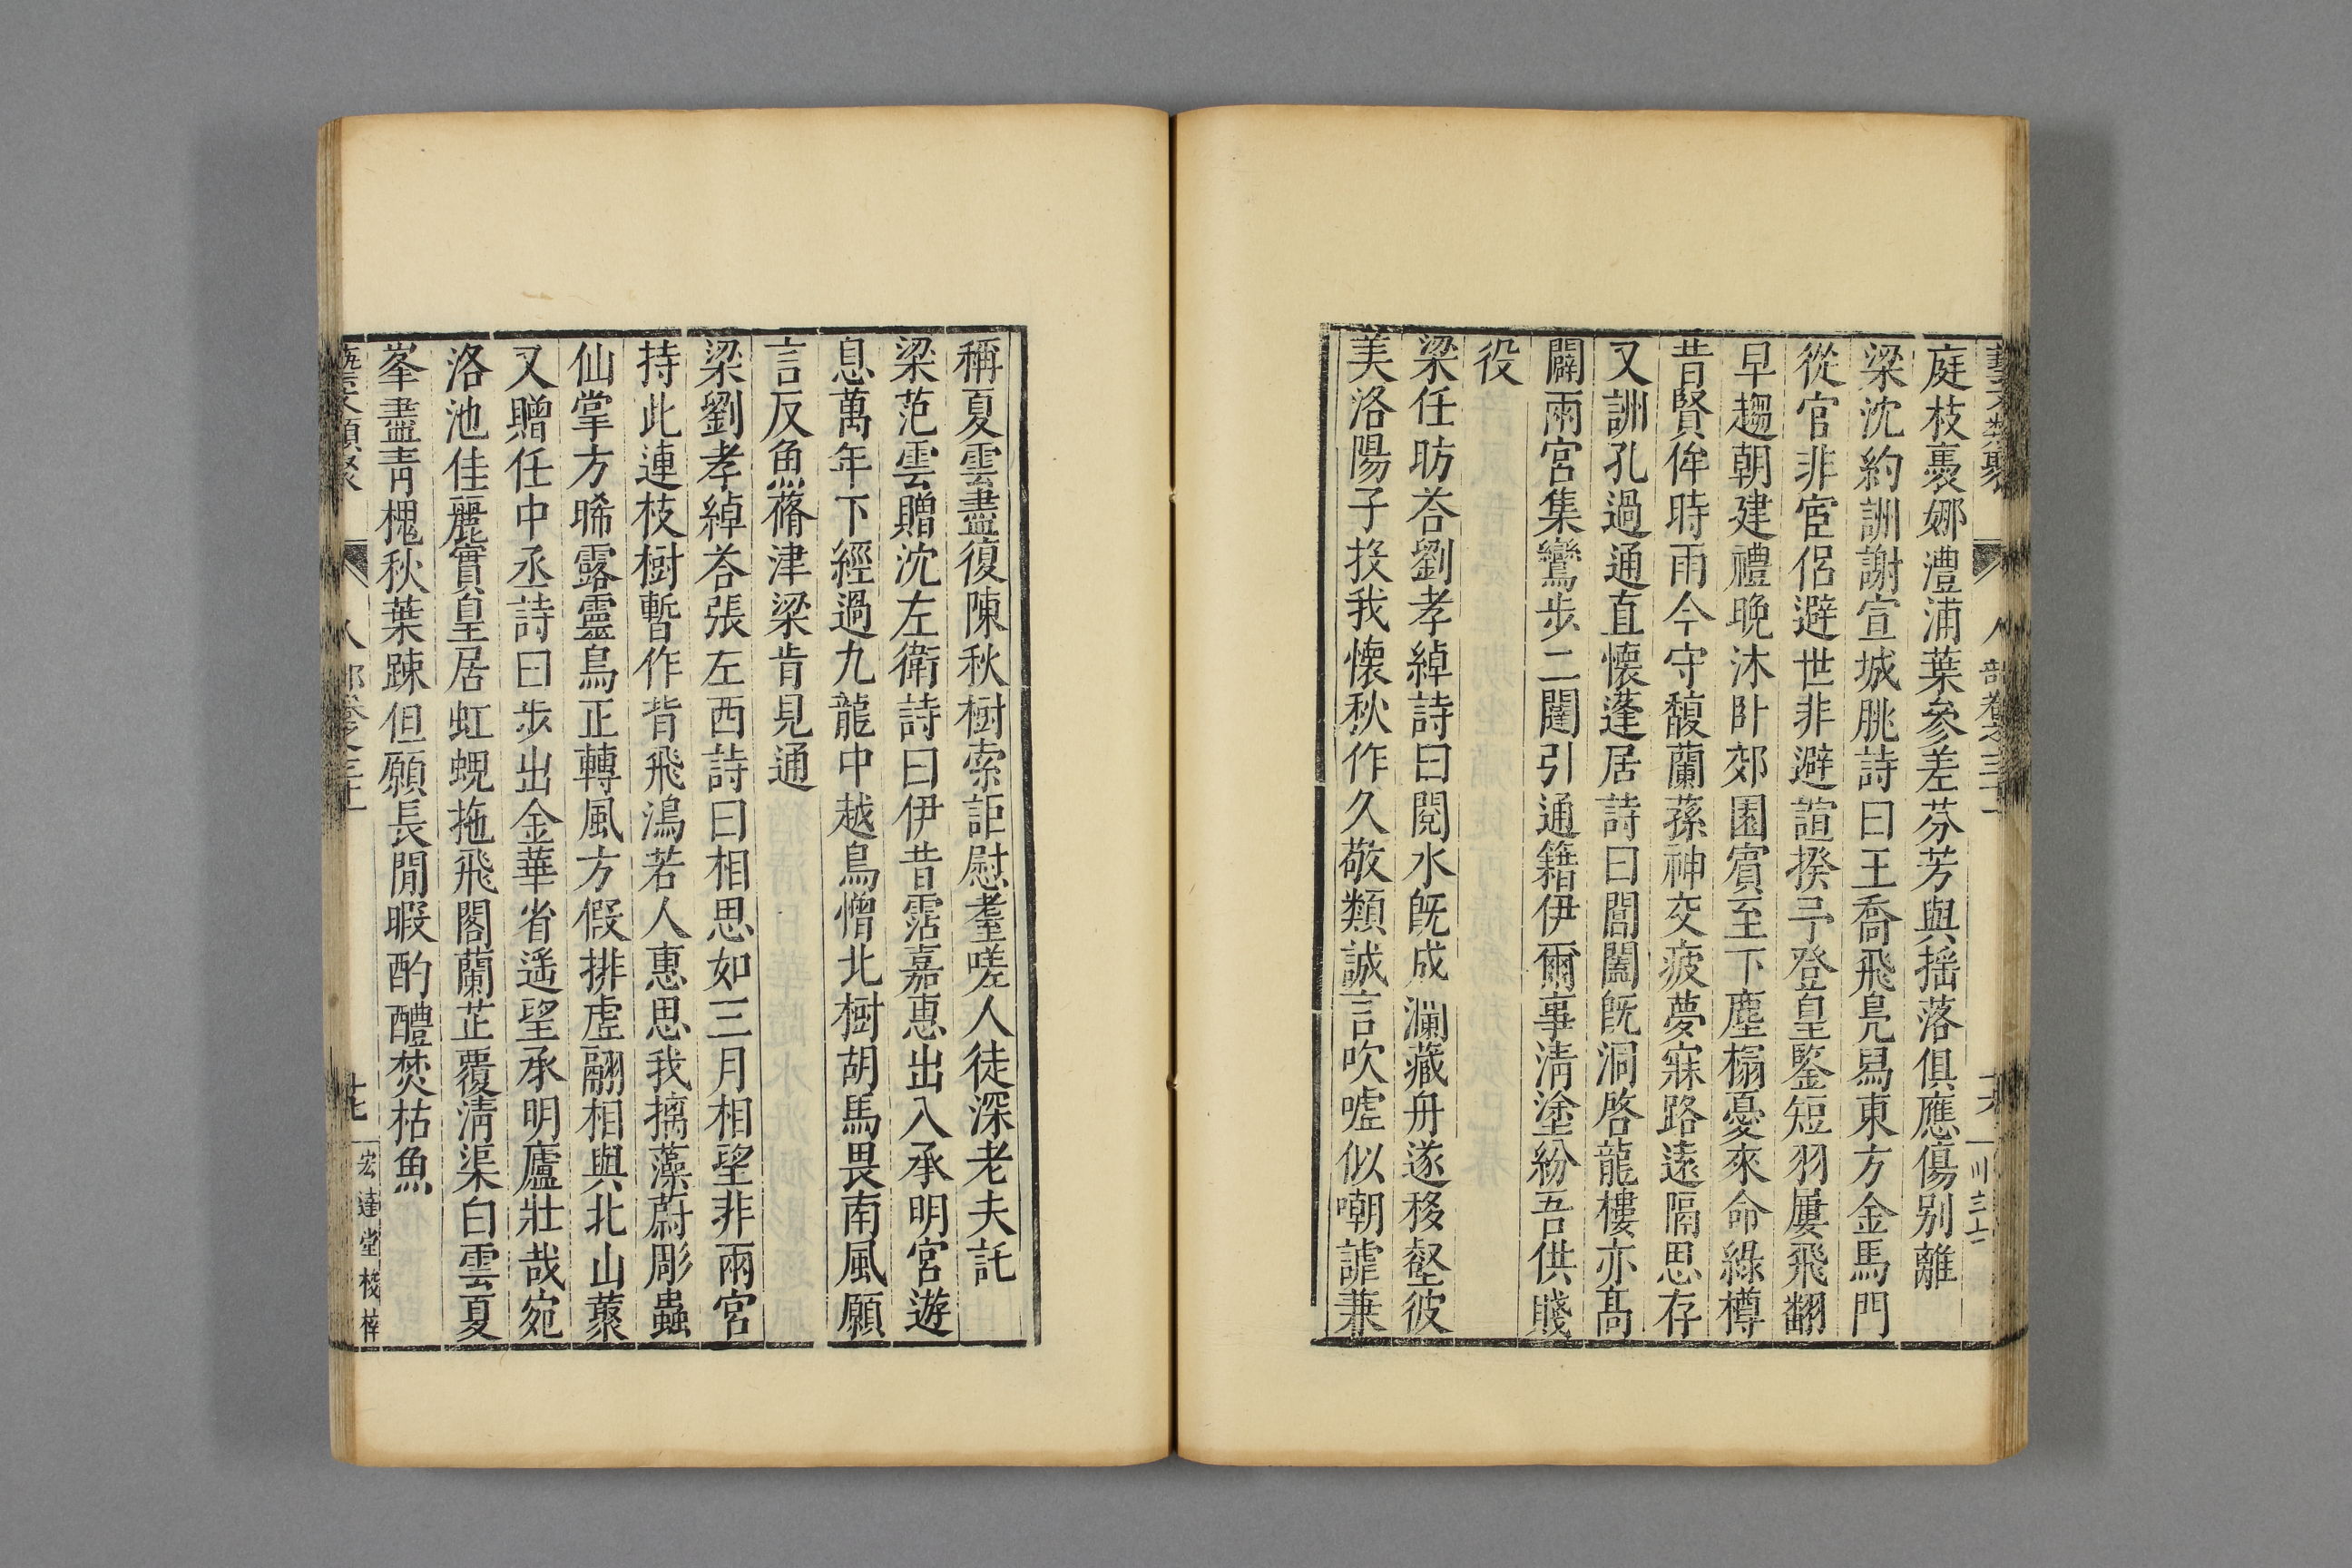 藝文類聚 人部卷之三十一 十六 川三十
庭枝裊娜澧浦葉參差芬芳與揺落俱應傷别離
梁沈約詶謝宣城朓詩曰王喬飛鳧舄東方金馬門
從官非宦侶避世非避諠揆予登皇鑒短羽屢飛翻
早趨朝建禮晚沐臥郊園賓至下塵榻憂來命綠樽
昔賢侔時雨今守馥蘭蓀神交疲夢寐路遠隔思存
又詶孔通直懷蓬居詩曰閶闔既洞啓龍樓亦髙
闢兩宮集鸞步二闥引通籍伊爾事清塗紛吾供賤
役
梁任昉荅劉孝綽詩曰閱水旣成瀾藏舟遂移壑彼
美洛陽子投我懷秋作久敬類誠言吹嘘似嘲謔兼
稱夏雲盡復陳秋樹索詎慰耋嗟人徒深老夫託
梁范雲贈沈左衛詩曰伊昔霑嘉惠出入承明宮遊
息萬年下經過九龍中越鳥憎北樹胡馬畏南風願
言反魚蓨津梁肯見通
梁劉孝綽荅張左西詩曰相思如三月相望非兩宮
持此連枝樹暫作背飛鴻若人惠思我摛藻蔚彫蟲
仙掌方晞露靈烏正轉風方假排虛翮相與北山藂
又贈任中丞詩曰步出金華省遥望承明廬壯哉宛
洛池佳麗實皇居虹蜺拖飛閣蘭芷覆清渠白雲夏
峯盡青槐秋葉踈但願長閒暇酌醴焚枯魚
藝文類聚 人部卷之三十一 十七 宏達堂棧梓